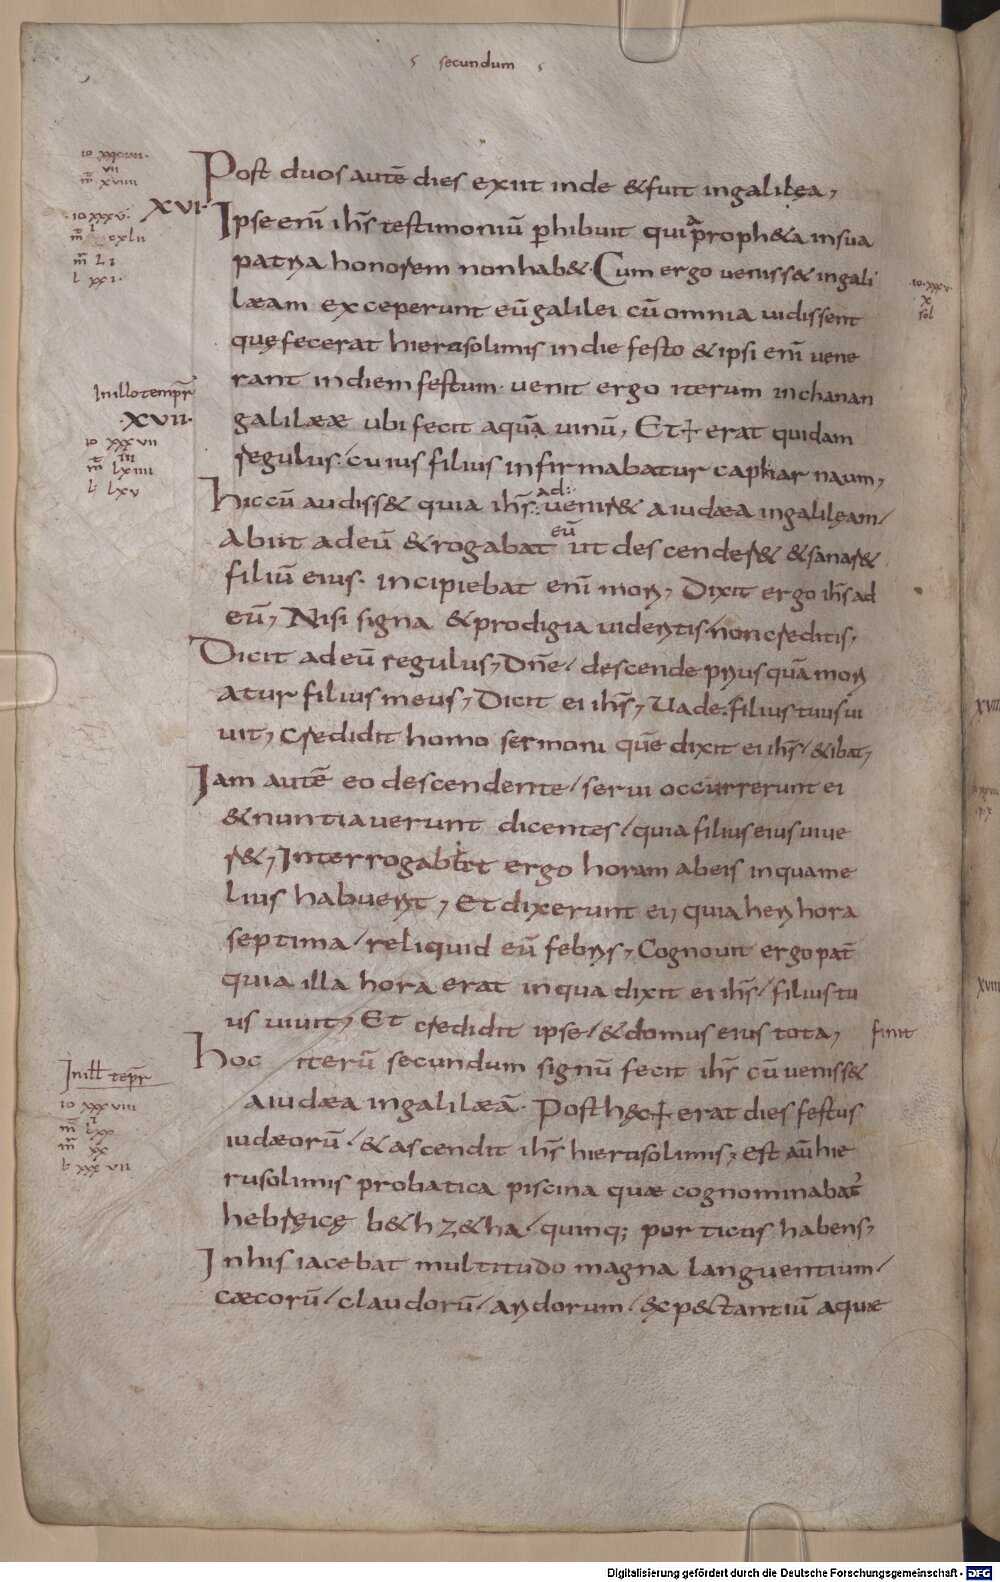 secundum
Post duos autē dies exiit inde & fuit in galilęa,
XVI
Ipse enī ihs̄ testimoniū perhibuit quia proph&a in sua
patria honorem non hab&. Cum ergo veniss& in gali
læam exceperunt eū galilei cū omnia vidissent
quę fecerat hierusolimis in die festo & ipsi enī vene
rant in diem festum. venit ergo iterum in chanan
In illo tempr̄
XVII
galilææ ubi fecit aquā vinū, Et erat quidam
regulus. cuius filius infirmabatur capharnaum,
Hic cū audiss& quia ihs̄ advenir& a iudæa in galilęam/
Abiit ad eū & rogabat eū ut descender& & sanar&
filiū eius. incipiebat enī mori, Dixit ergo ihs̄ ad
eū, Nisi signa & prodigia videritis/ non creditis,
Dicit ad eū regulus, Dn̄e/ descende prius quā mori
atur filius meus, Dicit ei ihs̄, Uade. filius tuus ui
uit, Credidit homo sermoni quē dixit ei ihs̄/ & ibat,
Iam autē eo descendente/ servi occurrerunt ei
& nuntiaverunt dicentes/ quia filius eius vive
r&, Interrogabat ergo horam ab eis in qua me
lius habuerit, Et dixerunt ei, quia heri hora
septima/ reliquid eū febris, Cognovit ergo pat̄
quia illa hora erat in qua dixit ei ihs̄/ filius tu
us vivit, Et credidit ipse/ & domus eius tota, finit
Hoc iterū secundum signū fecit ihs̄ cū veniss&
In ill tēpr̄
a iudæa in galilæā. Post hęc erat dies festus
iudæorū/ & ascendit ihs̄ hierusolimis, est aū hie
rusolimis probatica piscina quæ cognominabat̄
hebreicę b&hz&ha/ quinq; porticus habens,
In his iacebat multitudo magna languentium/
cæcorū/ claudorū/ aridorum/ exp&tantiū aquæ
Digitalisierung gefördert durch die Deutsche Forschungsgemeinschaft - DFG